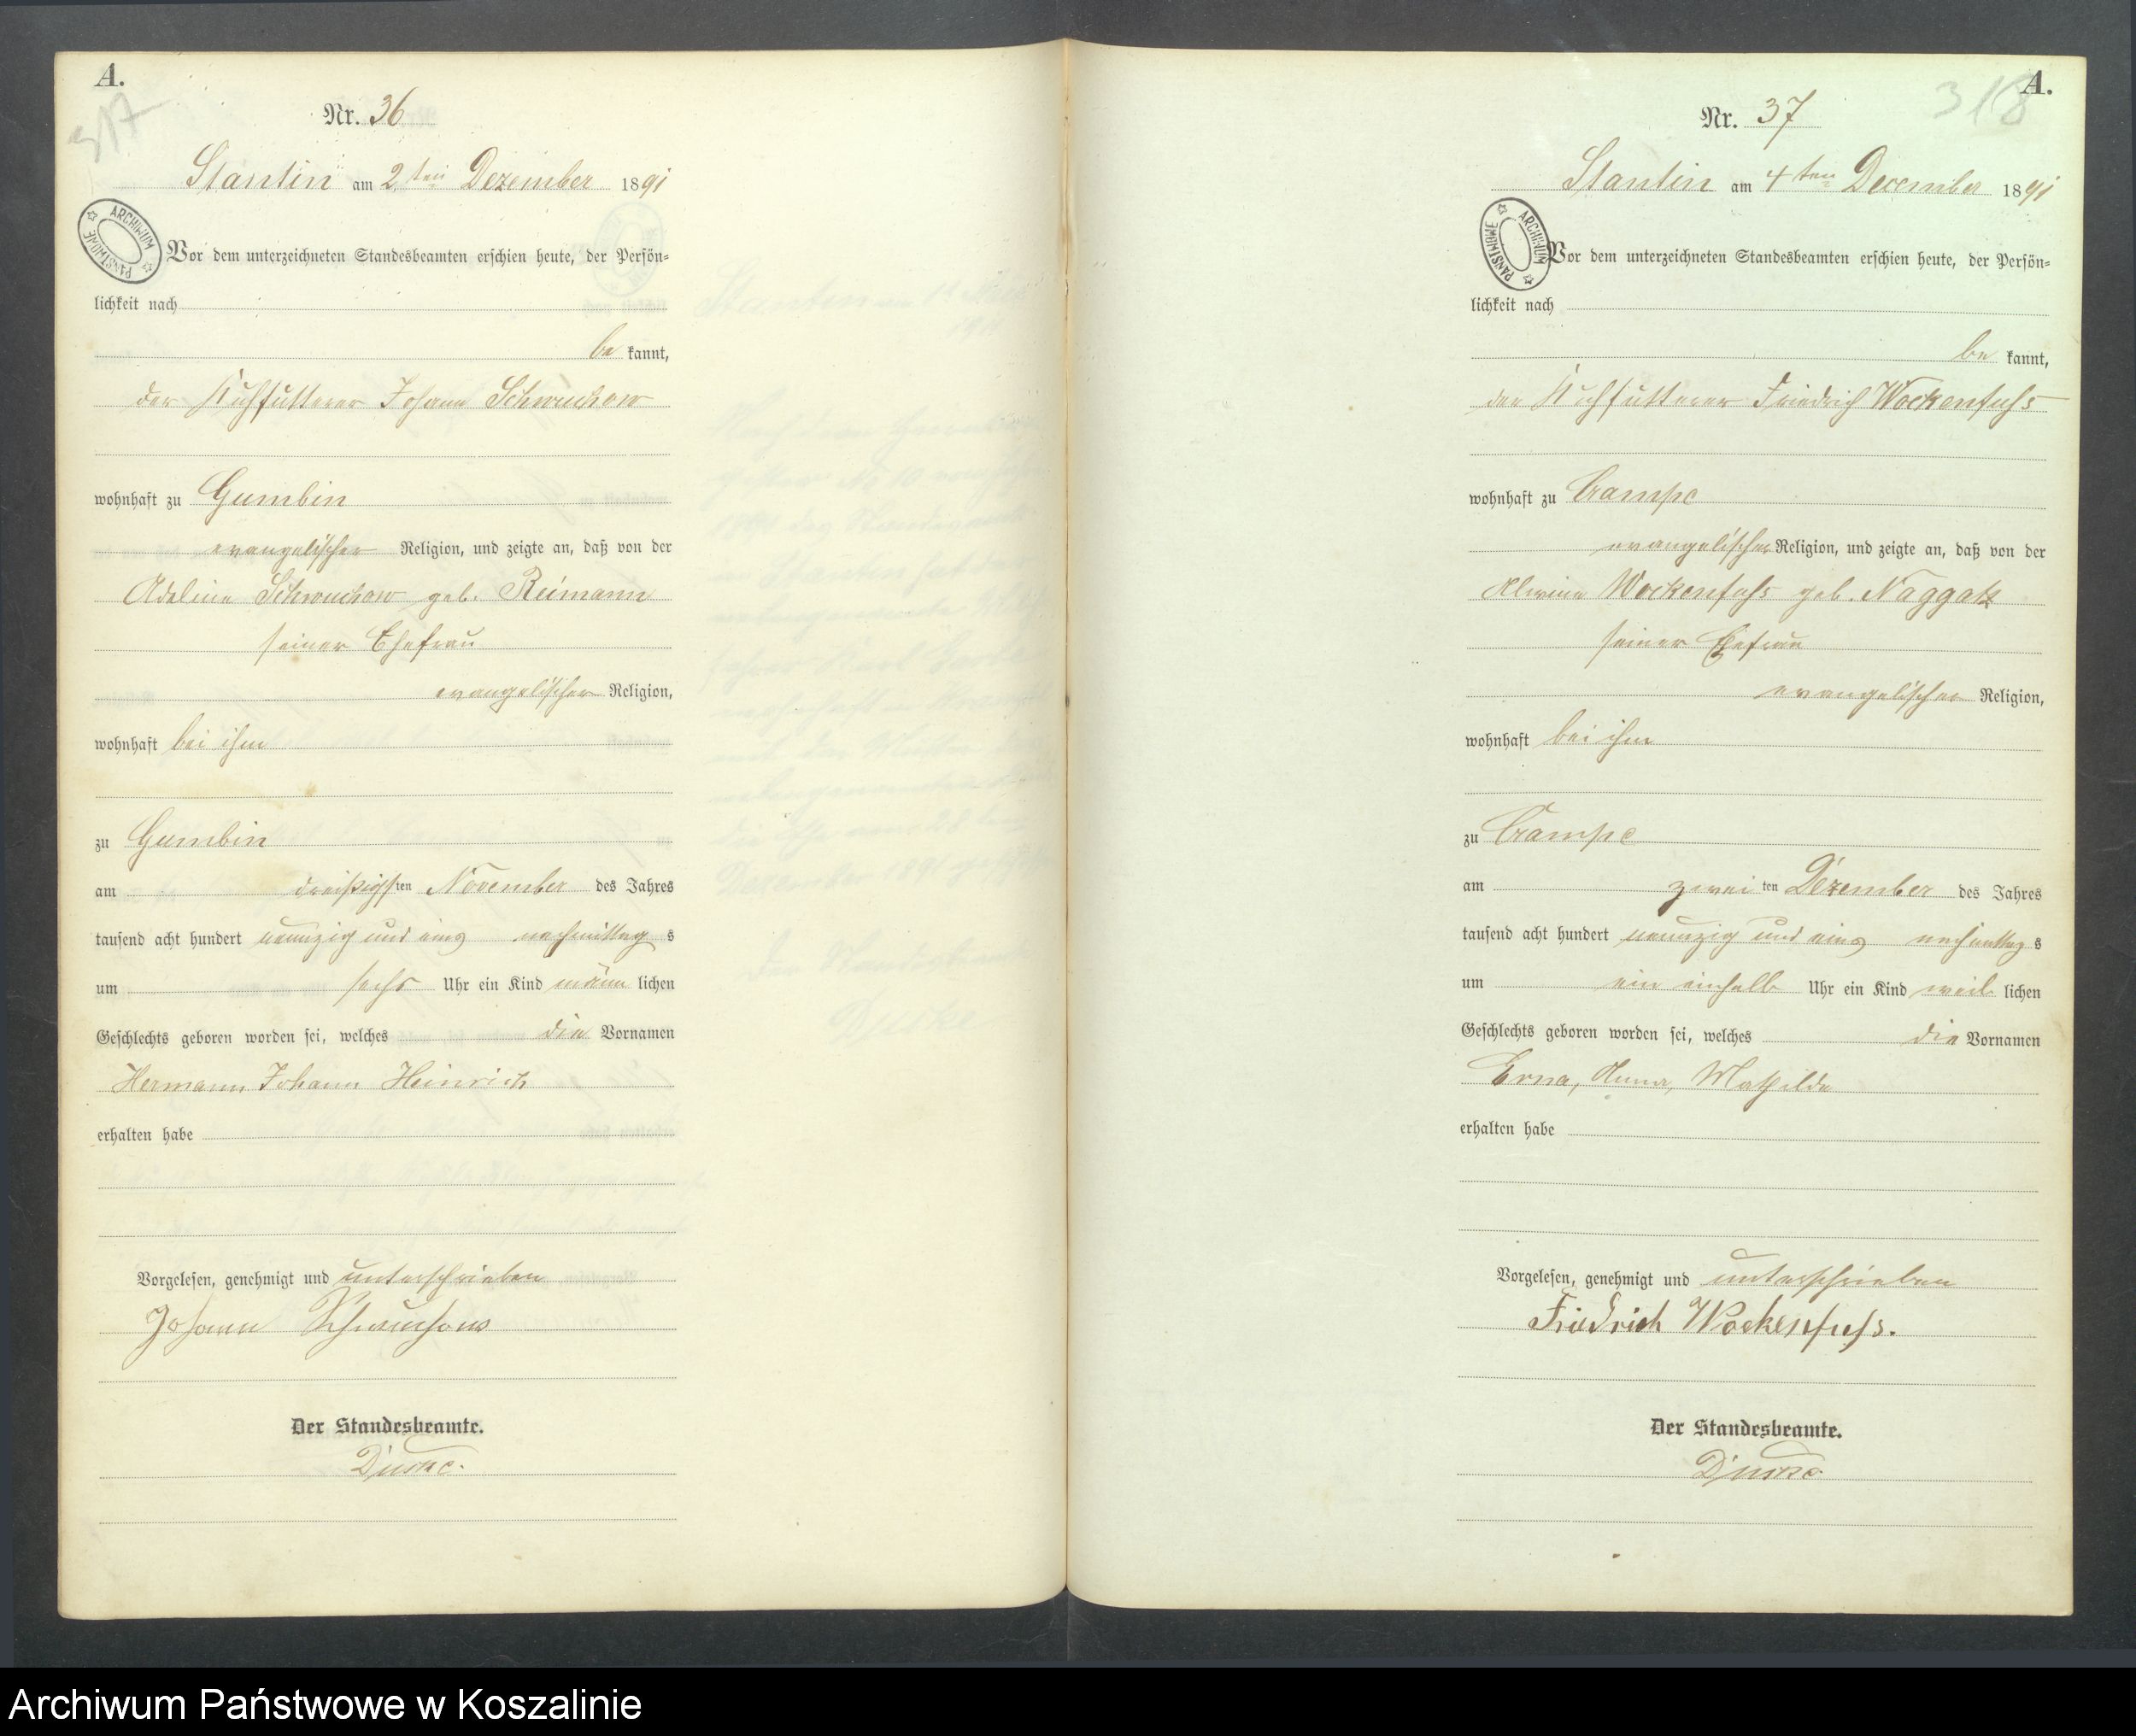 A.
317
Nr. 36
Stantin am 2ten Dezember 1891
ARCHIWUM PAŃSTWOWE
Vor dem unterzeichneten Standesbeamten erschien heute, der Persön=
lichkeit nach
be kannt,
der Kuhfütterer Johann Schwuchow
wohnhaft zu Gumbin
evangelischer Religion, und zeigte an, daß von der
Adeline Schwuchow geb. Reimann
seiner Ehefrau
evangelischer Religion,
wohnhaft bei ihm
zu Gumbin
am dreißigsten November des Jahres
tausend acht hundert neunzig und eins nachmittag s
um sechs Uhr ein Kind männ lichen
Geschlechts geboren worden sei, welches die Vornamen
Hermann Johann Heinrich
erhalten habe
Vorgelesen, genehmigt und unterschrieben
Johann Schwuchow
Der Standesbeamte.
A.
318
Nr. 37
Stantin am 4ten December 1891
ARCHIWUM PAŃSTWOWE
Vor dem unterzeichneten Standesbeamten erschien heute, der Persön=
lichkeit nach
be kannt,
der Kuhfütterer Friedrich Wockenfuhs
wohnhaft zu Crampe
evangelischer Religion, und zeigte an, daß von der
Alwine Wockenfuhs geb. Naggatz
seiner Ehefrau
evangelischer Religion,
wohnhaft bei ihm
zu Crampe
am zwei ten Dezember des Jahres
tausend acht hundert neunzig und eins nachmittag s
um ein einhalb Uhr ein Kind weib lichen
Geschlechts geboren worden sei, welches die Vornamen
Erna, Anna, Mathilde
erhalten habe
Vorgelesen, genehmigt und unterschrieben
Friedrich Wockenfuhs.
Der Standesbeamte.
Archiwum Państwowe w Koszalinie